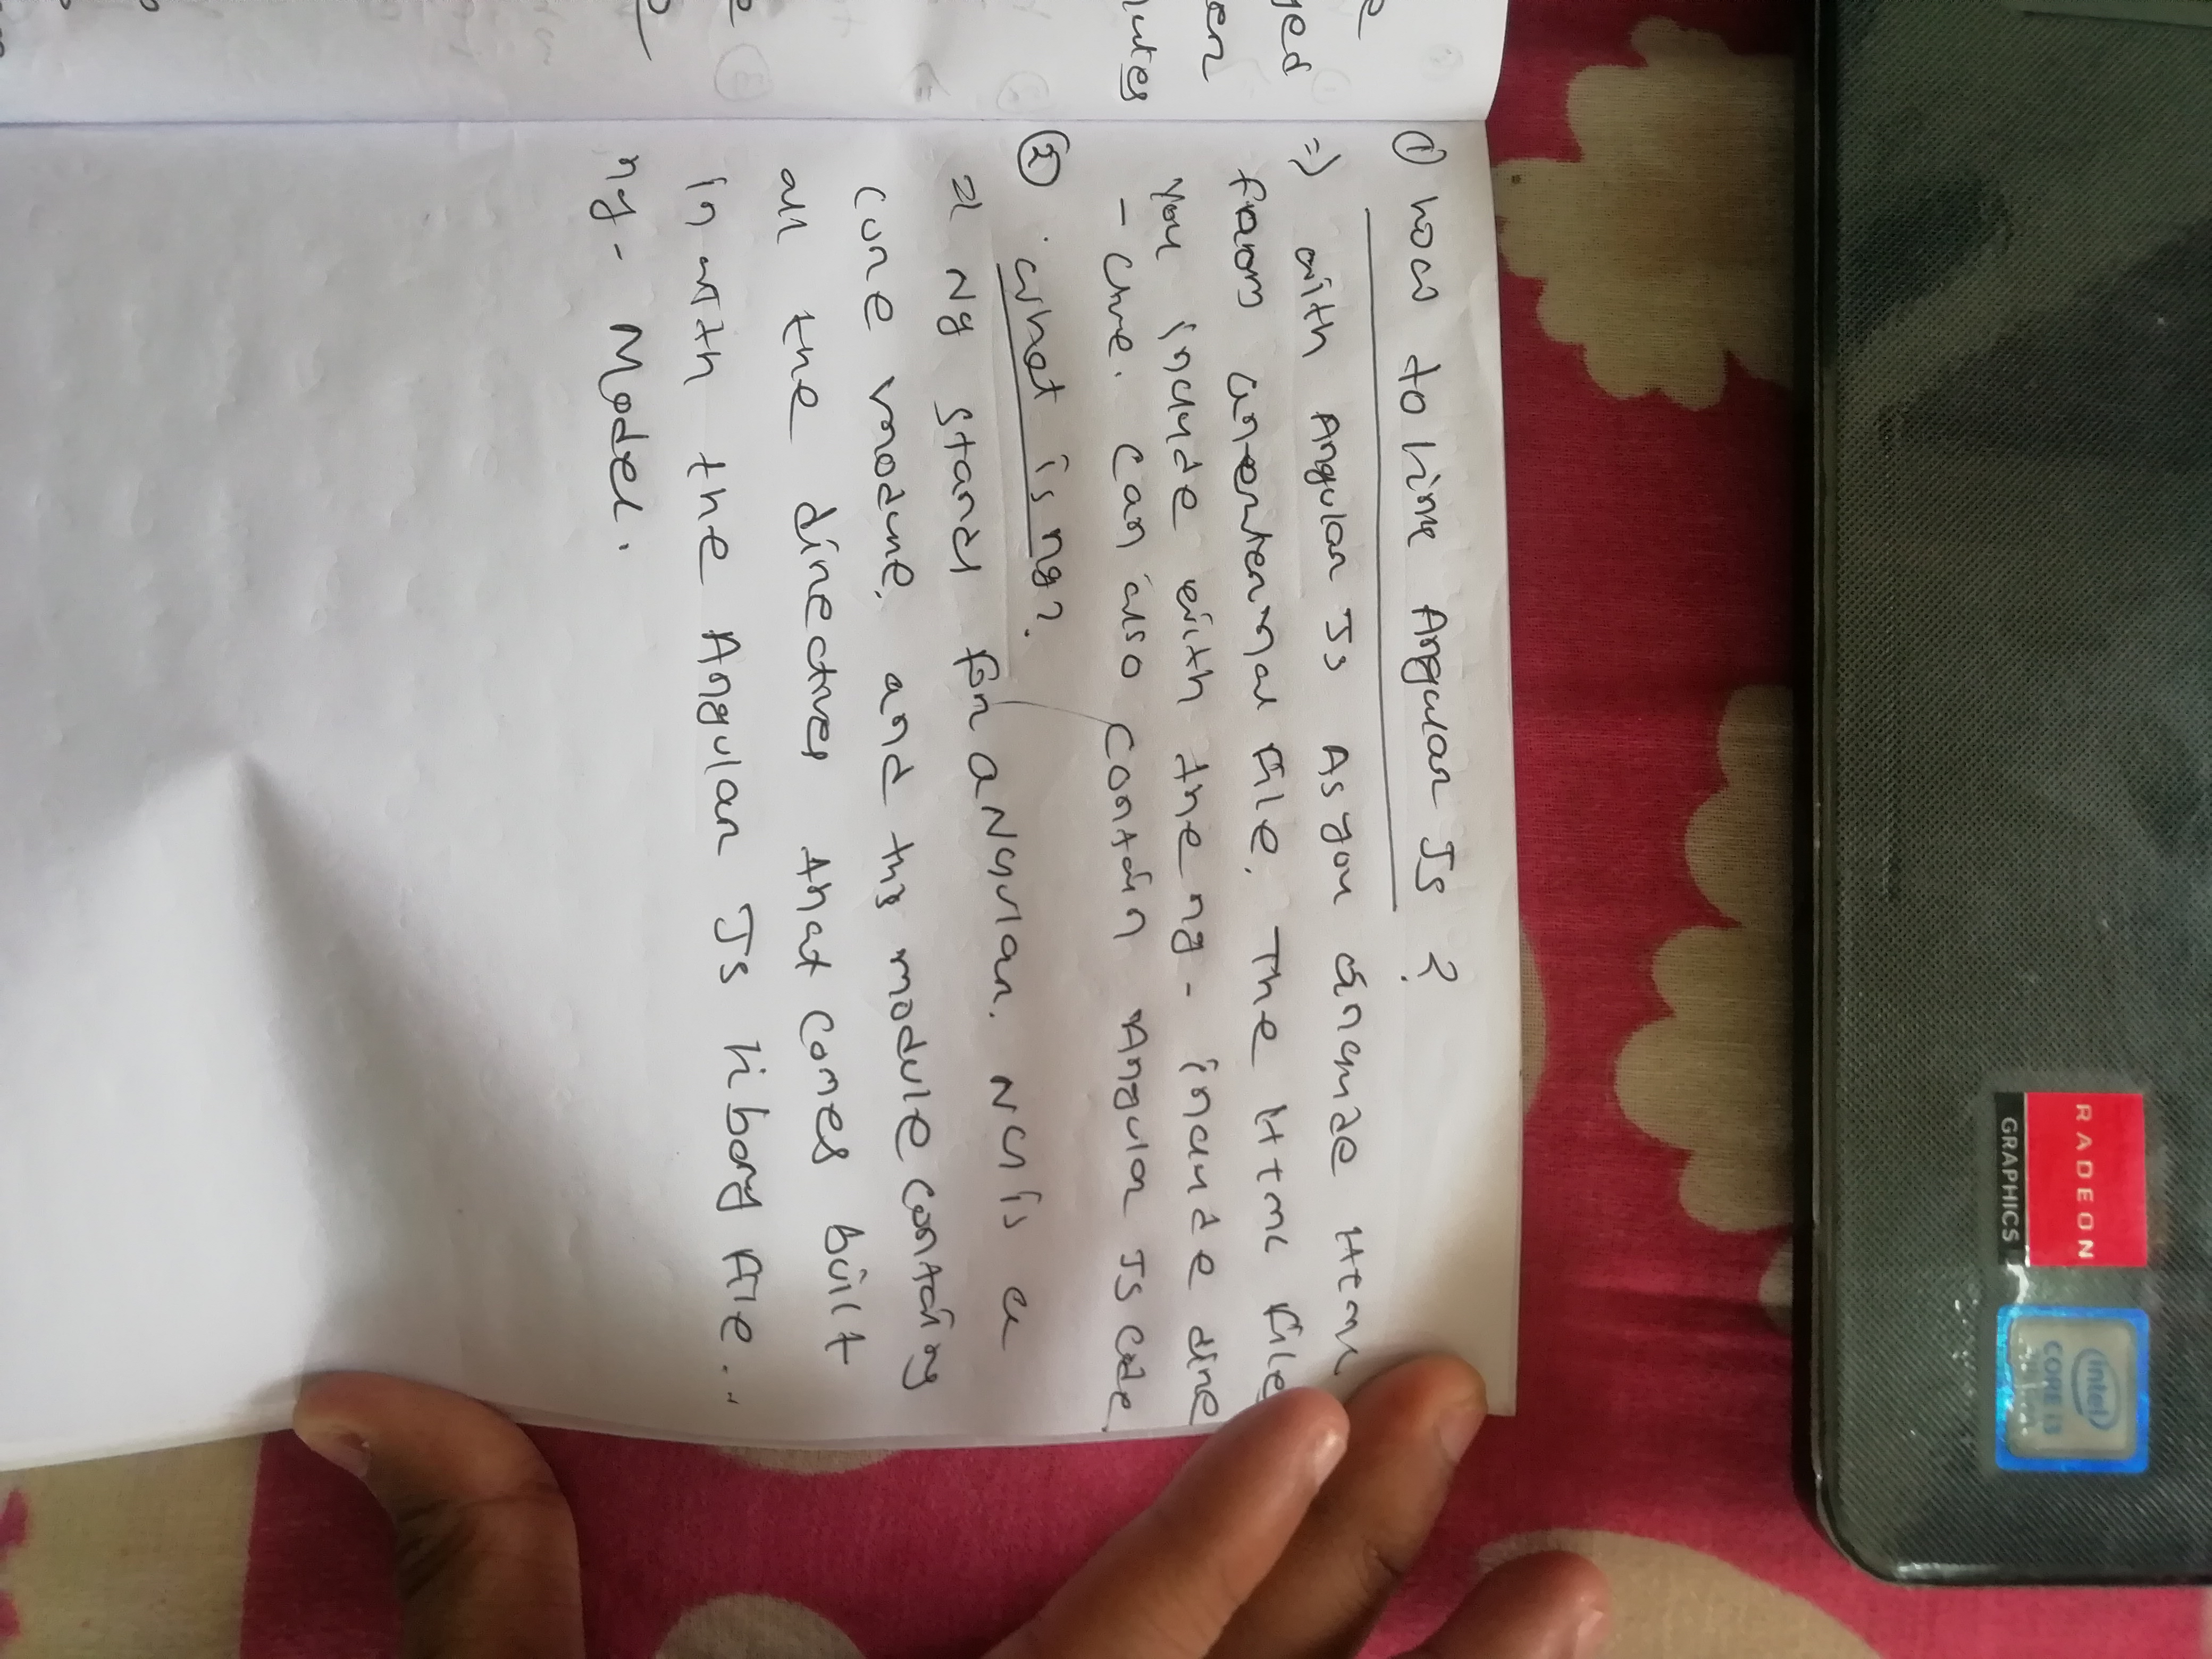 RADEON
GRAPHICS
intel
CORE i3
① how to link Angular Js ?
=> with Angular Js As you include Html
from an external file. The Html file
you include with the ng- include dire
- ctive. Can also contain Angular Js Code.
② what is ng?
=> Ng stands for aNgular. NG is a
core module. and this module containg
all the directives that comes built
in with the Angular Js libary file..
ng- Model.
ged
en
nutes